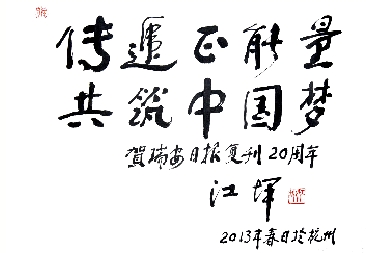 传递正能量
共筑中国梦
贺瑞安日报复刊20周年
江坪
2013年春日于杭州